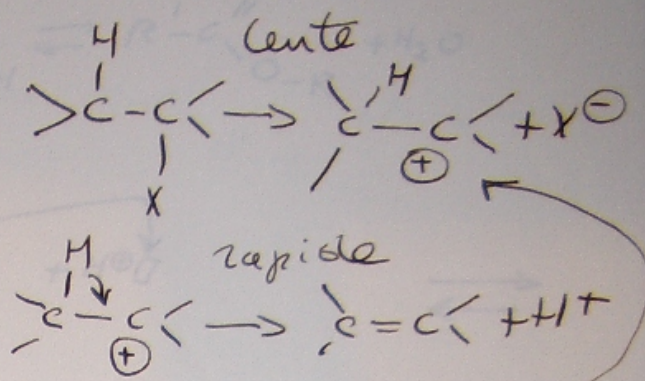 H lente H
>C-C< → C-C< + X⊖
X ⊕
H rapide
C-C< → C=C< + H+
⊕